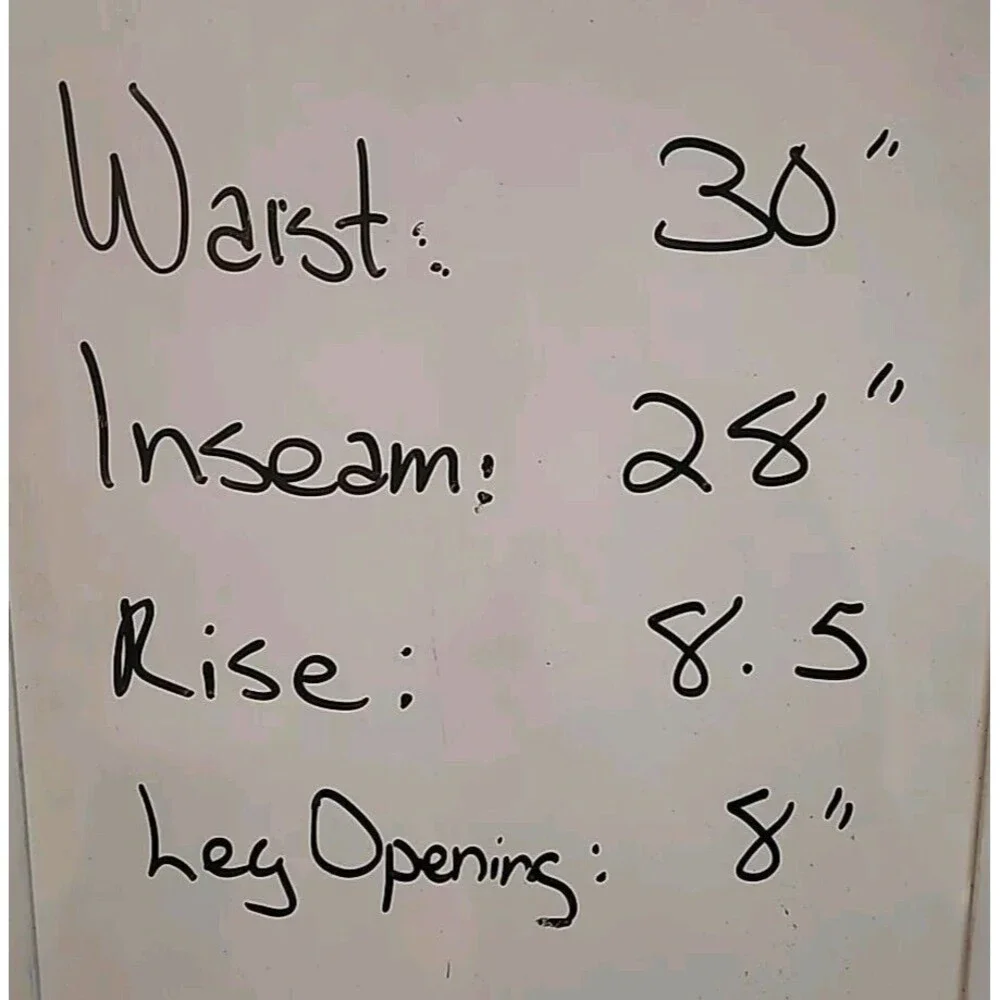 Waist: 30"
Inseam: 28"
Rise: 8.5
Leg Opening: 8"